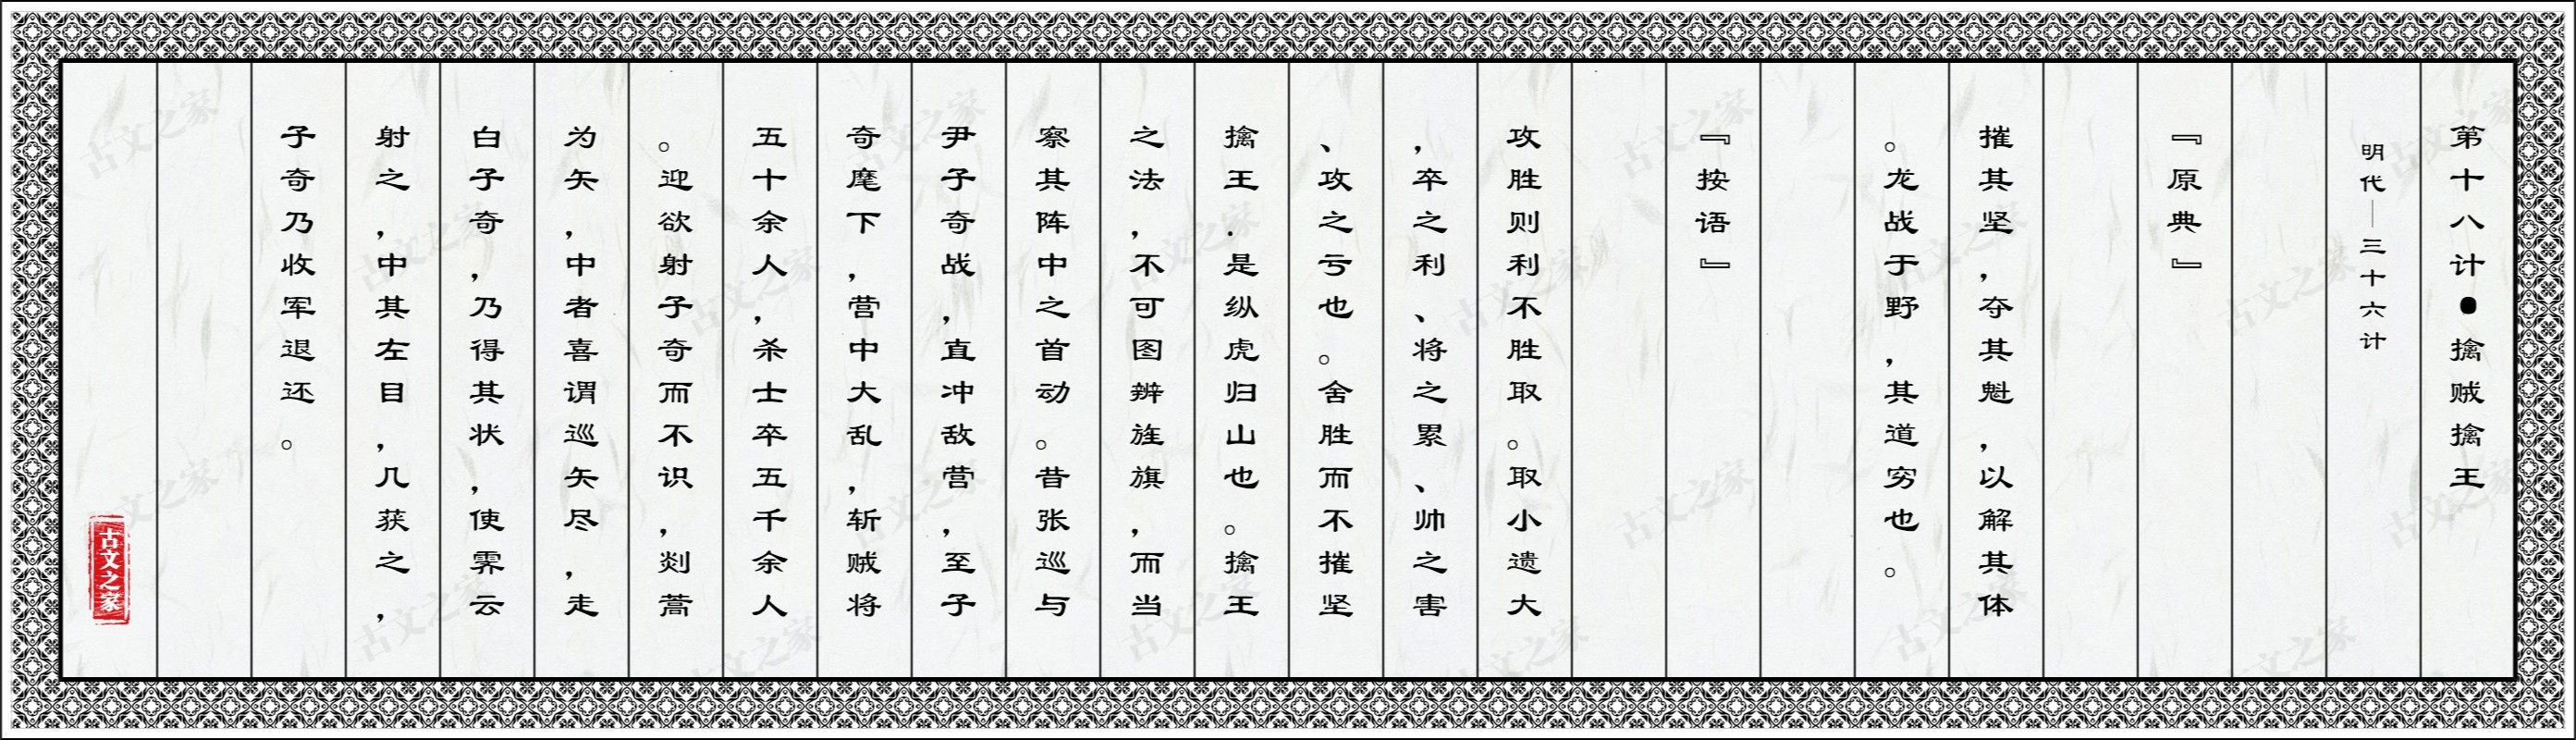 第十八计●擒贼擒王
明代——三十六计
『原典』
摧其坚，夺其魁，以解其体
。龙战于野，其道穷也。
『按语』
攻胜则利不胜取。取小遗大
，卒之利、将之累、帅之害
、攻之亏也。舍胜而不摧坚
擒王.是纵虎归山也。擒王
之法，不可图辨旌旗，而当
察其阵中之首动。昔张巡与
尹子奇战，直冲敌营，至子
奇麾下，营中大乱，斩贼将
五十余人，杀士卒五千余人
。迎欲射子奇而不识，剡蒿
为矢，中者喜谓巡矢尽，走
白子奇，乃得其状，使霁云
射之，中其左目，几获之，
子奇乃收军退还。
古文之家